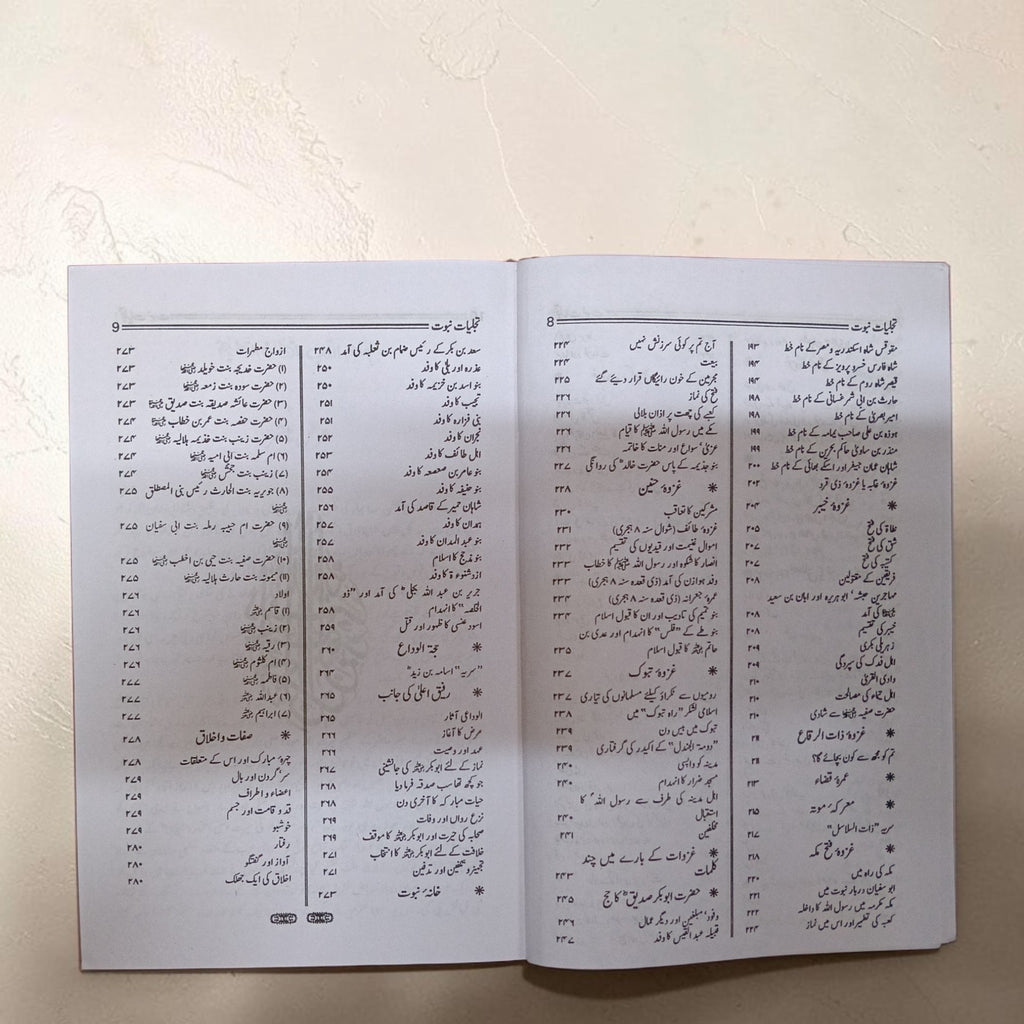 تجلیات نبوت 8
مقوقس شاہ اسکندریہ و مصر کے نام خط ۱۹۳
شاہ فارس خسرو پرویز کے نام خط ۱۹۴
قیصر شاہ روم کے نام خط ۱۹۴
حارث بن ابی شمر غسانی کے نام خط ۱۹۸
امیر بصریٰ کے نام خط ۱۹۸
ہوذہ بن علی صاحب یمامہ کے نام خط ۱۹۹
منذر بن ساویٰ حاکم بحرین کے نام خط ۱۹۹
شاہان عمان جیفر اور اسکے بھائی کے نام خط ۲۰۰
غزوۂ غابہ یا غزوۂ ذی قرد ۲۰۲
* غزوۂ خیبر ۲۰۴
۲۰۵ کی فتح
شق کی فتح ۲۰۷
کتیبہ کی فتح ۲۰۷
فریقین کے مقتولین ۲۰۸
مہاجرین حبشہ' ابو ہریرہ اور ابان بن سعید
ﷺ کی آمد ۲۰۸
خیبر کی تقسیم ۲۰۸
زہریلی بکری ۲۰۹
اہل فدک کی سپردگی ۲۰۹
وادی القریٰ ۲۱۰
اہل تیماء کی مصالحت ۲۱۰
حضرت صفیہ سے شادی ۲۱۰
* غزوۂ ذات الرقاع ۲۱۱
تم کو مجھ سے کون بچائے گا؟ ۲۱۱
* عمرۂ قضاء ۲۱۳
* معرکہ موتہ ۲۱۵
سریہ "ذات السلاسل" ۲۱۷
* غزوۂ فتح مکہ ۲۱۸
مکہ کی راہ میں ۲۲۰
ابو سفیان دربار نبوت میں ۲۲۱
مکہ مکرمہ میں رسول اللہ کا داخلہ ۲۲۲
کعبہ کی تطہیر اور اس میں نماز ۲۲۴
آج تم پر کوئی سرزنش نہیں ۲۲۴
بیعت ۲۲۴
مجرمین کے خون رائیگاں قرار دیئے گئے ۲۲۵
فتح کی نماز ۲۲۶
کعبے کی چھت پر اذان بلالی ۲۲۶
مکے میں رسول اللہ ﷺ کا قیام ۲۲۶
عزیٰ' سواع اور منات کا خاتمہ ۲۲۶
بنو جذیمہ کے پاس حضرت خالد کی روانگی ۲۲۷
* غزوۂ حنین ۲۲۸
مشرکین کا تعاقب ۲۳۰
غزوۂ طائف (شوال سنہ ۸ ہجری) ۲۳۱
اموال غنیمت اور قیدیوں کی تقسیم ۲۳۲
انصار کا شکوہ اور رسول اللہ ﷺ کا خطاب ۲۳۳
وفد ہوازن کی آمد (ذی قعدہ سنہ ۸ ہجری) ۲۳۳
عمرۂ جعرانہ (ذی قعدہ سنہ ۸ ہجری) ۲۳۴
بنو تمیم کی تادیب اور ان کا قبول اسلام ۲۳۴
بنو طے کے "فلس" کا انہدام اور عدی بن
حاتم کا قبول اسلام ۲۳۵
* غزوۂ تبوک ۲۳۷
رومیوں سے ٹکراؤ کیلئے مسلمانوں کی تیاری ۲۳۷
اسلامی لشکر "راہ تبوک" میں ۲۳۸
تبوک میں بیس دن ۲۳۹
"دومۃ الجندل" کے اکیدر کی گرفتاری ۲۳۹
مدینہ کو واپسی ۲۴۰
مسجد ضرار کا انہدام ۲۴۰
اہل مدینہ کی طرف سے رسول اللہ کا
استقبال ۲۴۰
مخلفین ۲۴۱
* غزوات کے بارے میں چند
کلمات ۲۴۳
* حضرت ابوبکر صدیق کا حج ۲۴۵
وفود' مبلغین اور دیگر عمال ۲۴۶
قبیلہ عبد القیس کا وفد ۲۴۷
تجلیات نبوت 9
سعد بن بکر کے رئیس ضمام بن ثعلبہ کی آمد ۲۴۸
عذرہ اور بلی کا وفد ۲۵۰
بنو اسد بن خزیمہ کا وفد ۲۵۰
تجیب کا وفد ۲۵۱
بنی فزارہ کا وفد ۲۵۱
نجران کا وفد ۲۵۲
اہل طائف کا وفد ۲۵۳
بنو عامر بن صعصعہ کا وفد ۲۵۴
بنو حنیفہ کا وفد ۲۵۵
شاہان حمیر کے قاصد کی آمد ۲۵۶
ہمدان کا وفد ۲۵۷
بنو عبد المدان کا وفد ۲۵۷
بنو مذحج کا اسلام ۲۵۸
ازد شنوءۃ کا وفد ۲۵۸
جریر بن عبد اللہ بجلی کی آمد اور "ذو
الخلصہ" کا انہدام ۲۵۸
اسود عنسی کا ظہور اور قتل ۲۵۹
* حجۃ الوداع ۲۶۰
"سریہ" اسامہ بن زید ۲۶۴
* رفیق اعلیٰ کی جانب ۲۶۵
الوداعی آثار ۲۶۵
مرض کا آغاز ۲۶۶
عہد اور وصیت ۲۶۶
نماز کے لئے ابوبکر کی جانشینی ۲۶۷
جو کچھ تھا سب صدقہ فرما دیا ۲۶۸
حیات مبارکہ کا آخری دن ۲۶۸
نزع رواں اور وفات ۲۶۹
صحابہ کی حیرت اور ابوبکر کا موقف ۲۶۹
خلافت کے لئے ابوبکر کا انتخاب ۲۷۱
تجہیز و تکفین اور تدفین ۲۷۱
* خانہ نبوت ۲۷۳
ازواج مطہرات ۲۷۳
(۱) حضرت خدیجہ بنت خویلد ۲۷۳
(۲) حضرت سودہ بنت زمعہ ۲۷۳
(۳) حضرت عائشہ صدیقہ بنت صدیق ۲۷۳
(۴) حضرت حفصہ بنت عمر بن خطاب ۲۷۴
(۵) حضرت زینب بنت خذیمہ ہلالیہ ۲۷۴
(۶) ام سلمہ بنت ابی امیہ ۲۷۴
(۷) زینب بنت جحش ۲۷۴
(۸) جویریہ بنت الحارث رئیس بنی المصطلق ۲۷۵
(۹) حضرت ام حبیبہ رملہ بنت ابی سفیان ۲۷۵
(۱۰) حضرت صفیہ بنت حیی بن اخطب ۲۷۵
(۱۱) میمونہ بنت حارث ہلالیہ ۲۷۵
اولاد ۲۷۶
(۱) قاسم ۲۷۶
(۲) زینب ۲۷۶
(۳) رقیہ ۲۷۶
(۴) ام کلثوم ۲۷۶
(۵) فاطمہ ۲۷۷
(۶) عبداللہ ۲۷۷
(۷) ابراہیم ۲۷۷
* صفات و اخلاق ۲۷۸
چہرۂ مبارک اور اس کے متعلقات ۲۷۸
سر' گردن اور بال ۲۷۹
اعضاء و اطراف ۲۷۹
قد و قامت اور جسم ۲۷۹
خوشبو ۲۷۹
رفتار ۲۸۰
آواز اور گفتگو ۲۸۰
اخلاق کی ایک جھلک ۲۸۰